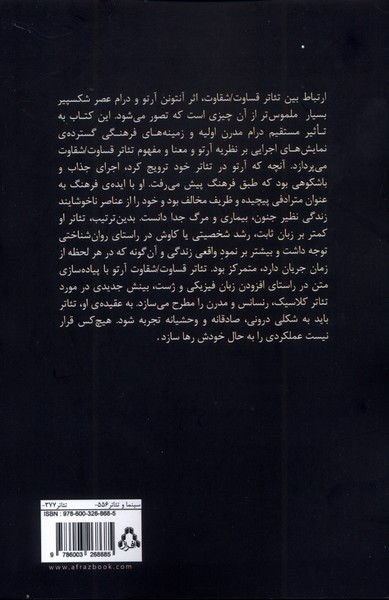 ارتباط بین تئاتر قساوت/شقاوت، اثر آنتونن آرتو و درام عصر شکسپیر
بسیار ملموس‌تر از آن چیزی است که تصور می‌شود. این کتاب به
تأثیر مستقیم درام مدرن اولیه و زمینه‌های فرهنگی گسترده‌ی
نمایش‌های اجرایی بر نظریه آرتو و معنا و مفهوم تئاتر قساوت/شقاوت
می‌پردازد. آنچه که آرتو در تئاتر خود ترویج کرد، اجرای جذاب و
باشکوهی بود که طبق فرهنگ پیش می‌رفت. او با ایده‌ی فرهنگ به
عنوان مترادفی پیچیده و ظریف مخالف بود و خود را از عناصر ناخوشایند
زندگی نظیر جنون، بیماری و مرگ جدا دانست. بدین‌ترتیب، تئاتر او
کمتر بر زبان ثابت، رشد شخصیتی یا کاوش در راستای روان‌شناختی
توجه داشت و بیشتر بر نمود واقعی زندگی و آن‌گونه که در هر لحظه از
زمان جریان دارد، متمرکز بود. تئاتر قساوت/شقاوت آرتو با پیاده‌سازی
متن در راستای افزودن زبان فیزیکی و ژست، بینش جدیدی در مورد
تئاتر کلاسیک، رنسانس و مدرن را مطرح می‌سازد. به عقیده‌ی او، تئاتر
باید به شکلی درونی، صادقانه و وحشیانه تجربه شود. هیچ‌کس قرار
نیست عملکردی را به حال خودش رها سازد.
سینما و تئاتر ۵۵۶- تئاتر ۳۷۷-
ISBN: 978-600-326-868-5
9 786003 268685
افراز
www.afrazbook.com